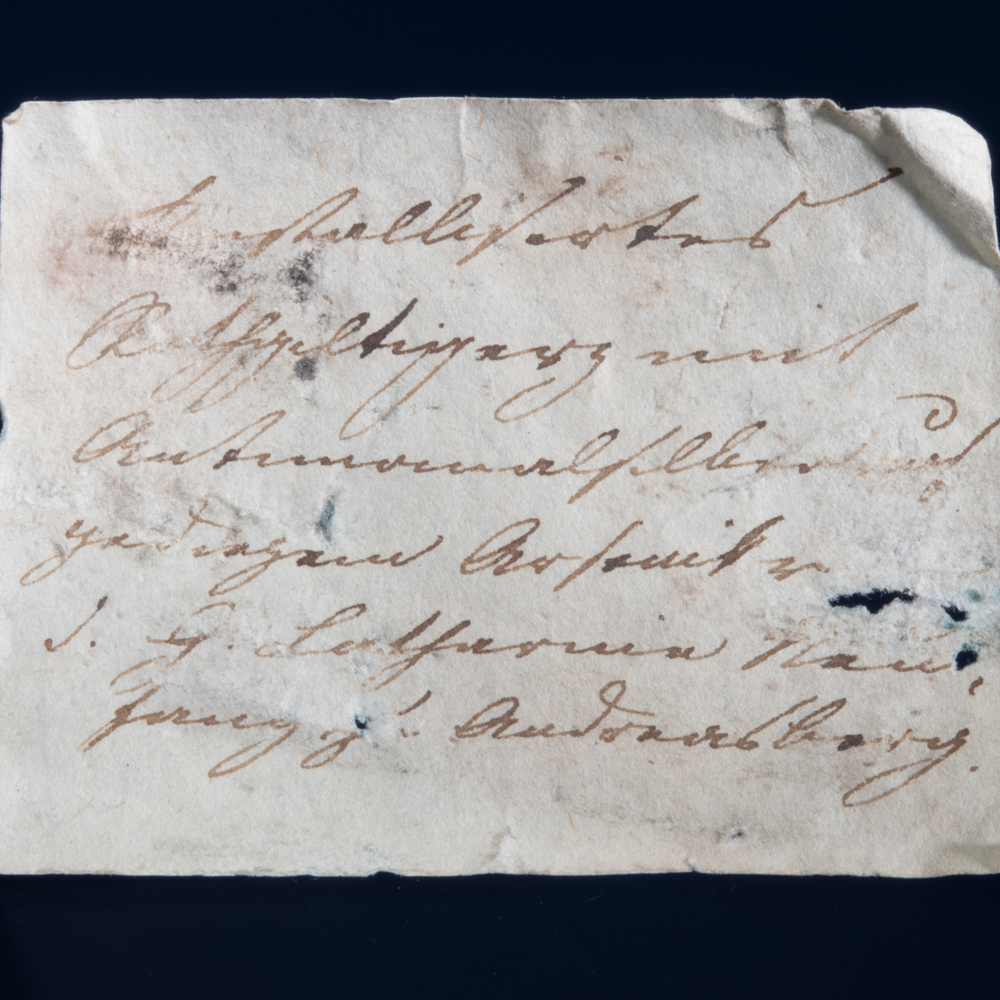 Krystallisirtes
Rothgiltigerz mit
Antimonialsilber auf
gediegem Arsenik v.
d. G. Catharine Neu-
fang z. Andreasberg.